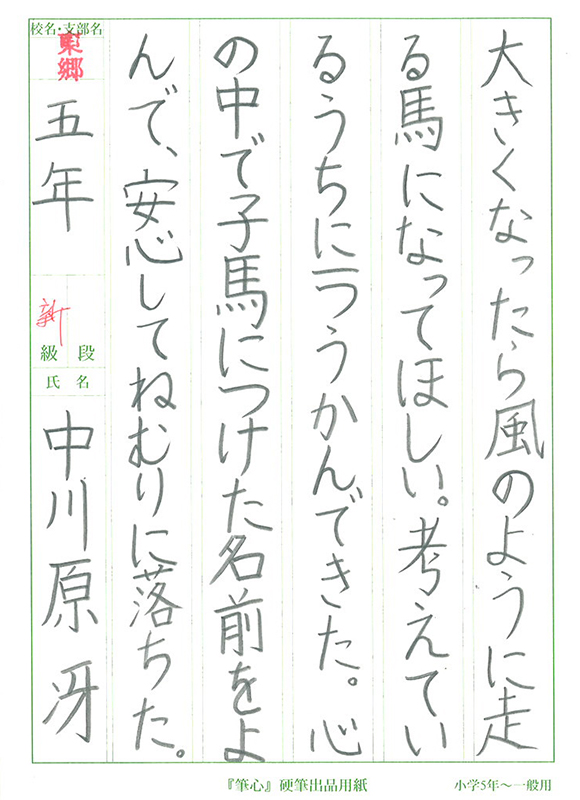 大きくなったら風のように走
る馬になってほしい。考えてい
るうちに一つうかんできた。心
の中で子馬につけた名前をよ
んで、安心してねむりに落ちた。
校名・支部名
東郷
五年
新
級 段
氏 名
中川原 冴
『筆心』硬筆出品用紙
小学5年〜一般用